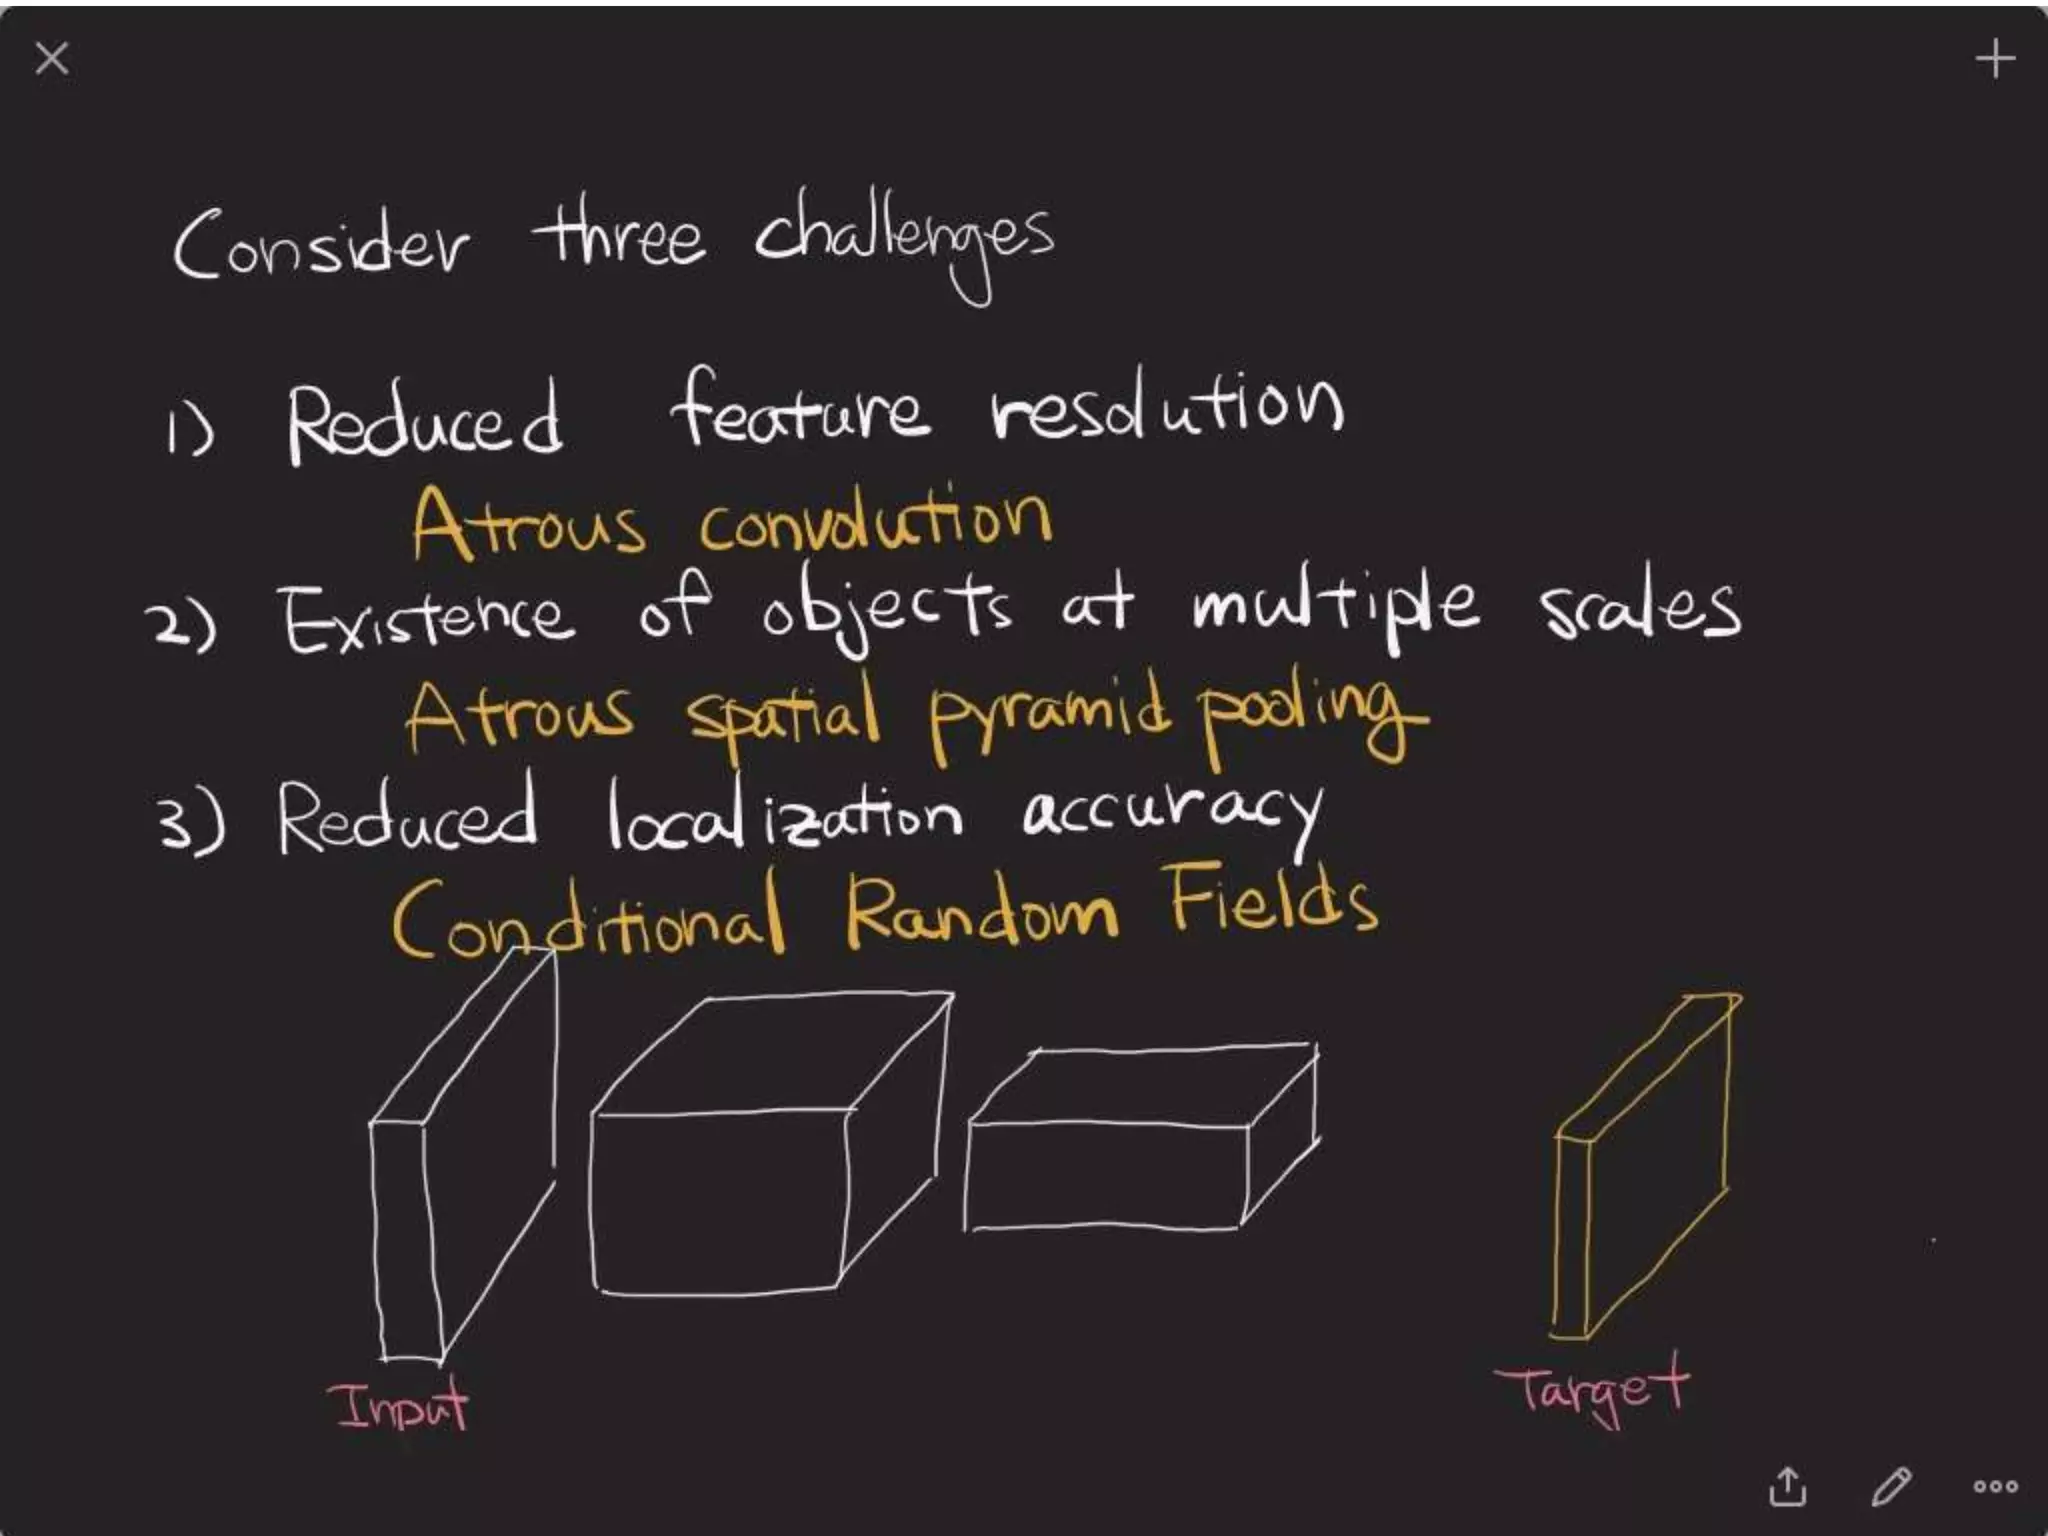 Consider three challenges
1) Reduced feature resolution
Atrous convolution
2) Existence of objects at multiple scales
Atrous spatial pyramid pooling
3) Reduced localization accuracy
Conditional Random Fields
Input
Target